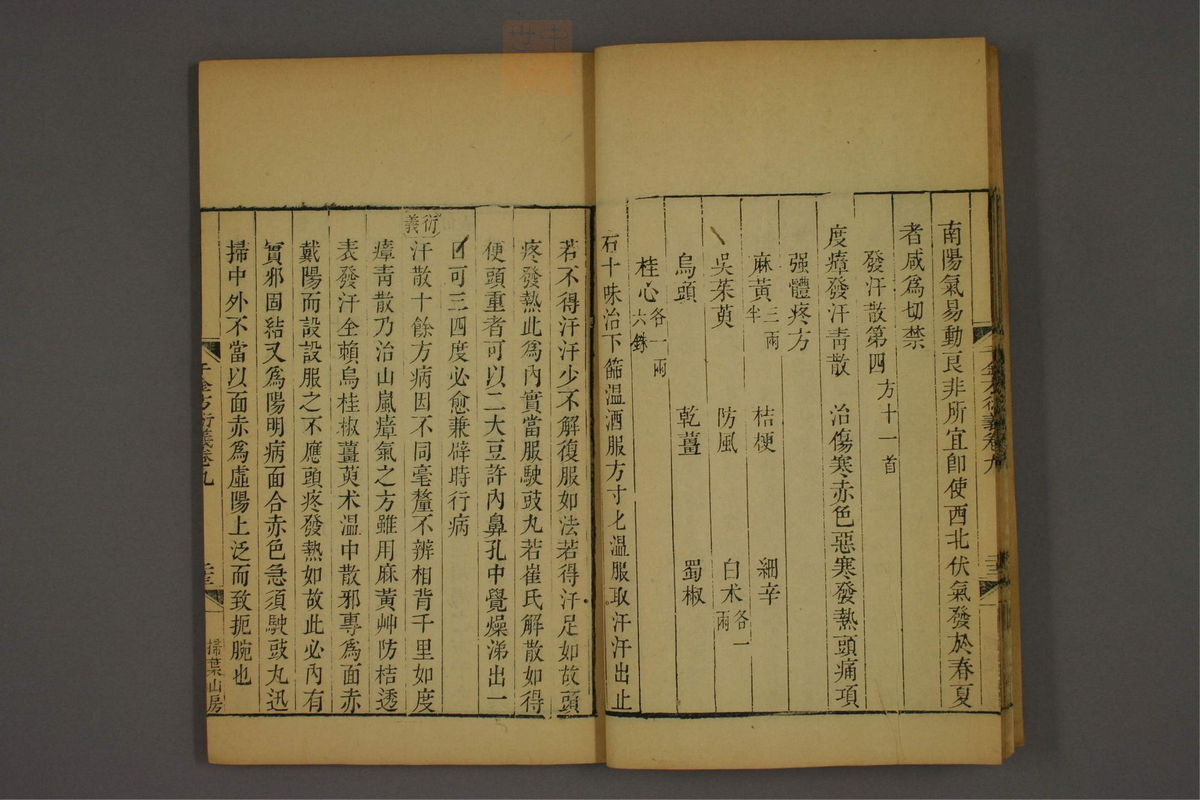 南陽氣易動良非所宜卽使西北伏氣發於春夏
者咸爲切禁
發汗散第四方十一首
度瘴發汗靑散　治傷寒赤色惡寒發熱頭痛項
强體疼方
麻黃三兩半　桔梗　細辛
吳茱萸　防風　白朮各一兩
烏頭　乾薑　蜀椒
桂心各一兩六銖
石十味治下篩溫酒服方寸匕溫服取汗汗出止
若不得汗汗少不解復服如法若得汗足如故頭
疼發熱此爲內實當服駛豉丸若崔氏解散如得
便頭重者可以二大豆許內鼻孔中覺燥涕出一
日可三四度必愈兼辟時行病
衍義
汗散十餘方病因不同毫釐不辨相背千里如度
瘴靑散乃治山嵐瘴氣之方雖用麻黃艸防桔透
表發汗全賴烏桂椒薑萸朮溫中散邪專爲面赤
戴陽而設設服之不應頭疼發熱如故此必內有
實邪固結又爲陽明病面合赤色急須駛豉丸迅
掃中外不當以面赤爲虛陽上泛而致扼腕也
千金方衍義卷九
掃葉山房